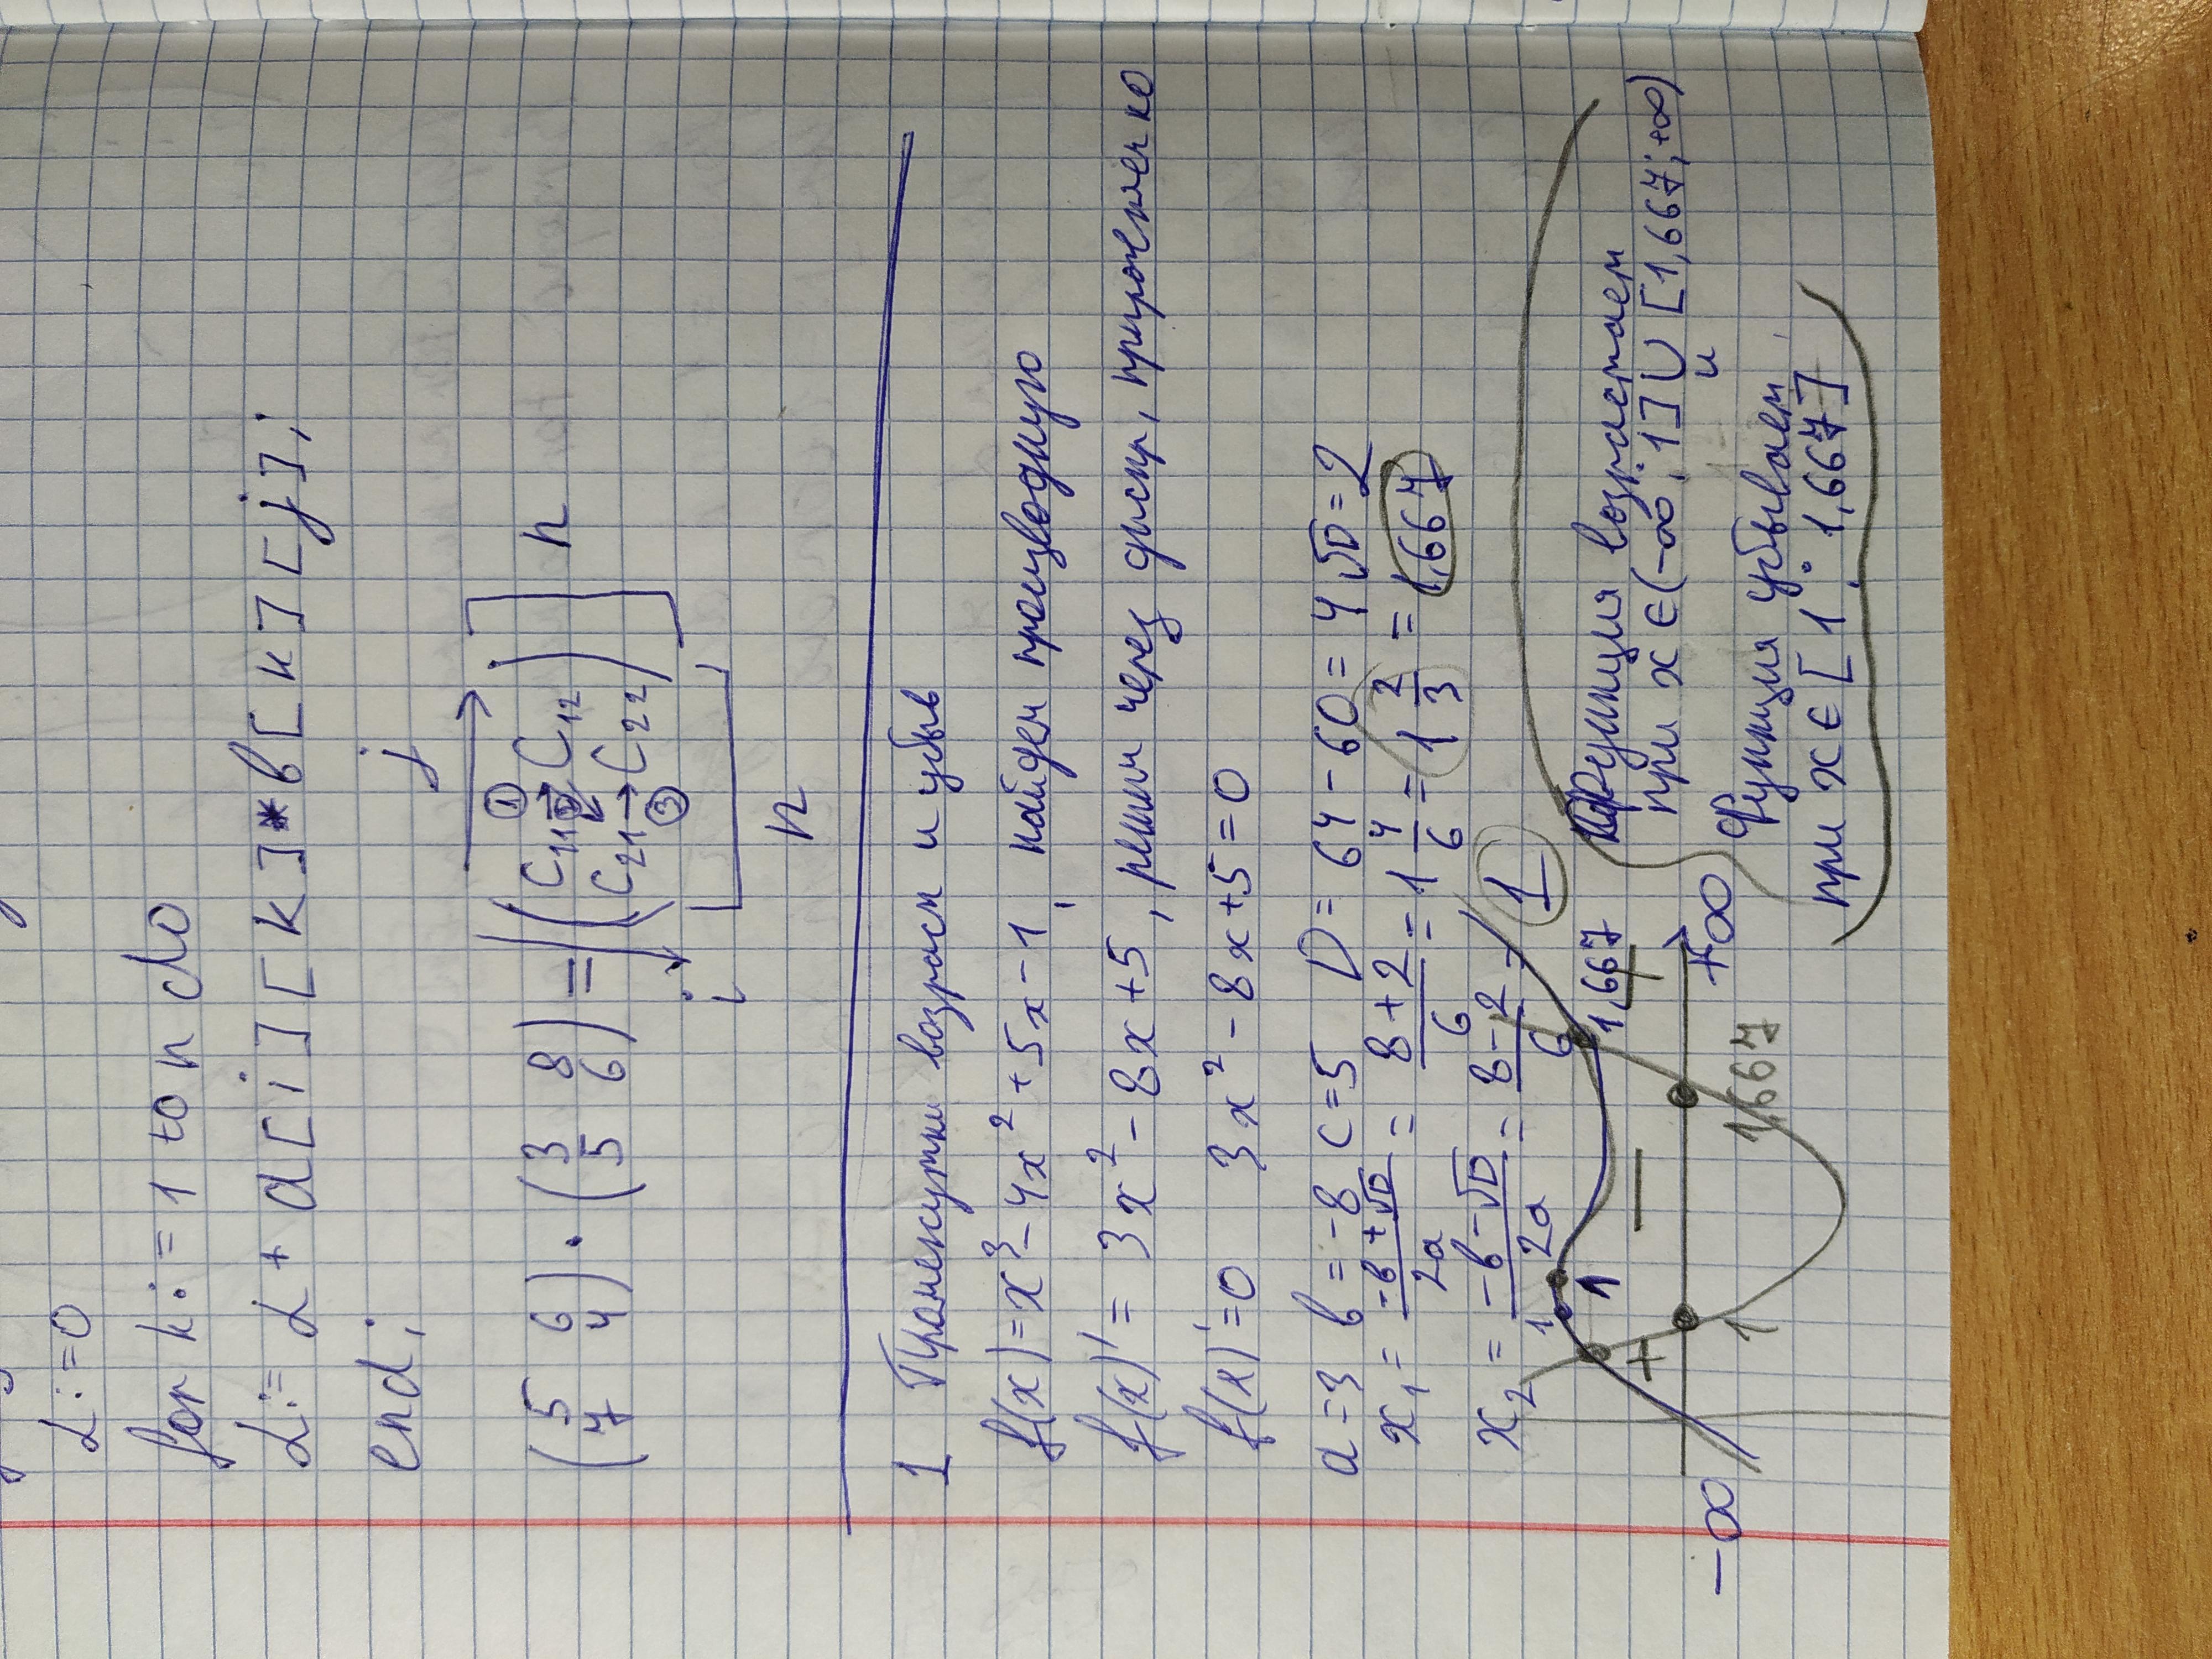 L:=0
for k:=1 to n do
L:= L + a[i][k]*b[k][j];
end;
j
(5 6 · (3 8 = (C11 C12 n
7 4) 5 6) C21 C22)
① ② ③
i
n
1 Промежутки возраст и убыв
f(x)=x³-4x²+5x-1, найдем производную
f(x)'= 3x²-8x+5, решим через дискр, приравняем ко
f(x)'=0 3x²-8x+5=0
a=3 b=-8 c=5 D=64-60=4 √D=2
x₁= -b+√D/2a = 8+2/6 = 1 4/6 = 1 2/3 = 1,667
x₂= -b-√D/2a = 8-2/6 = 1
1 1 1,667
+ — +
-∞ 1 1,667 +∞
Функция возрастает
при x∈(-∞; 1]∪[1,667;+∞)
и
Функция убывает
при x∈[1; 1,667]